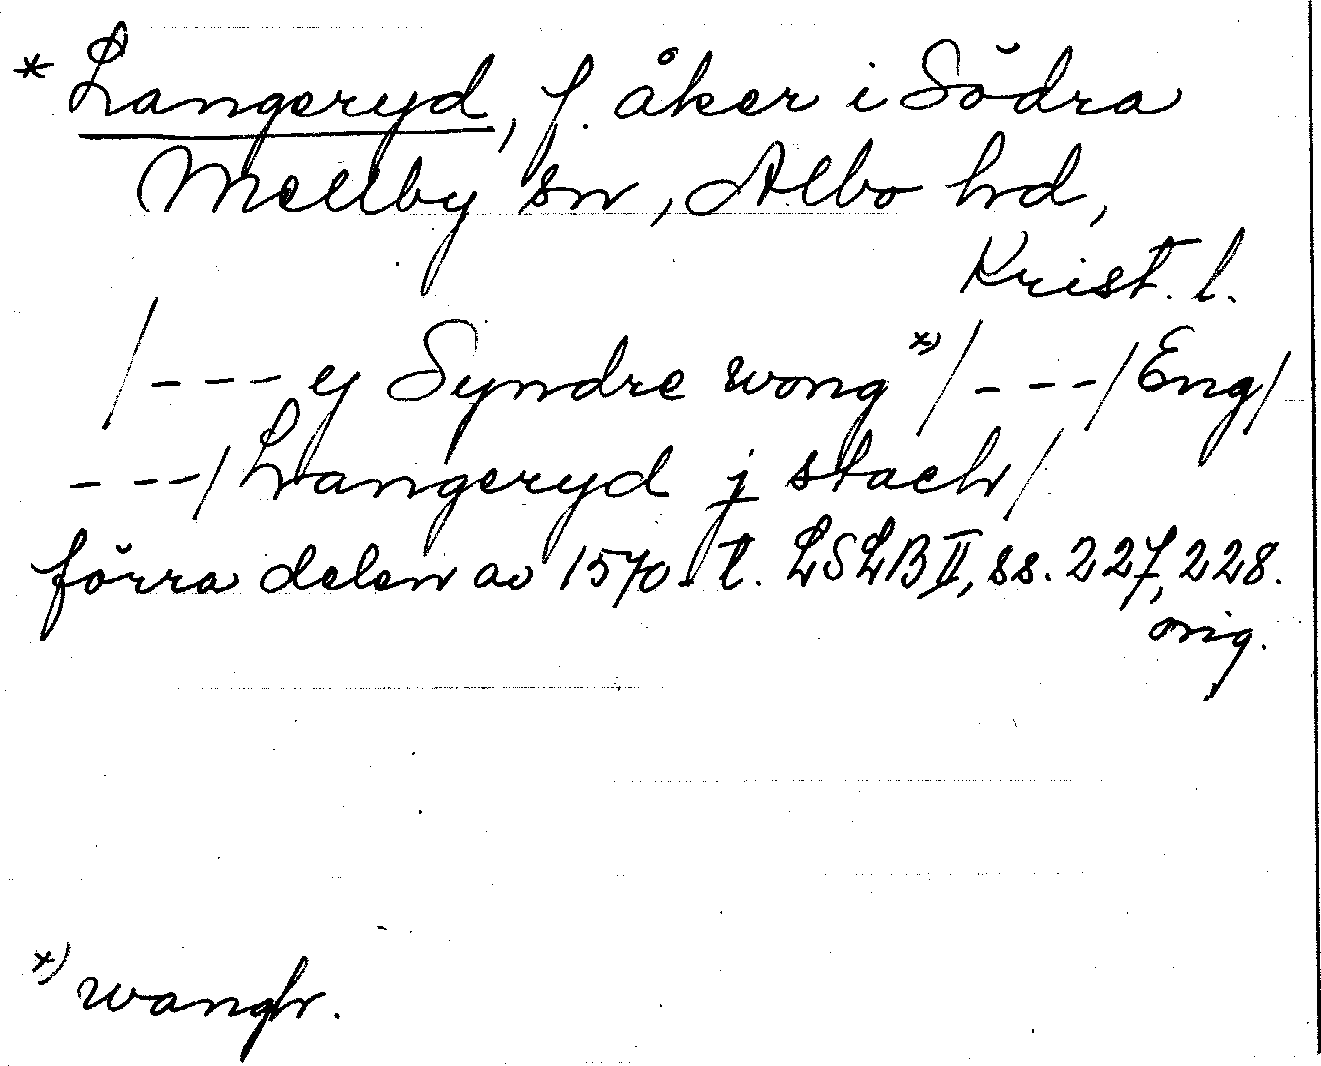 * Langeryd, f. åker i Södra
Mellby sn, Albo hd,
Krist. l.
/--- ej Syndre wong *)/---/Eng/
---/Langeryd j stach/
förra delen av 1570-t. LSLB II, ss. 227, 228.
orig.
*) wangh.